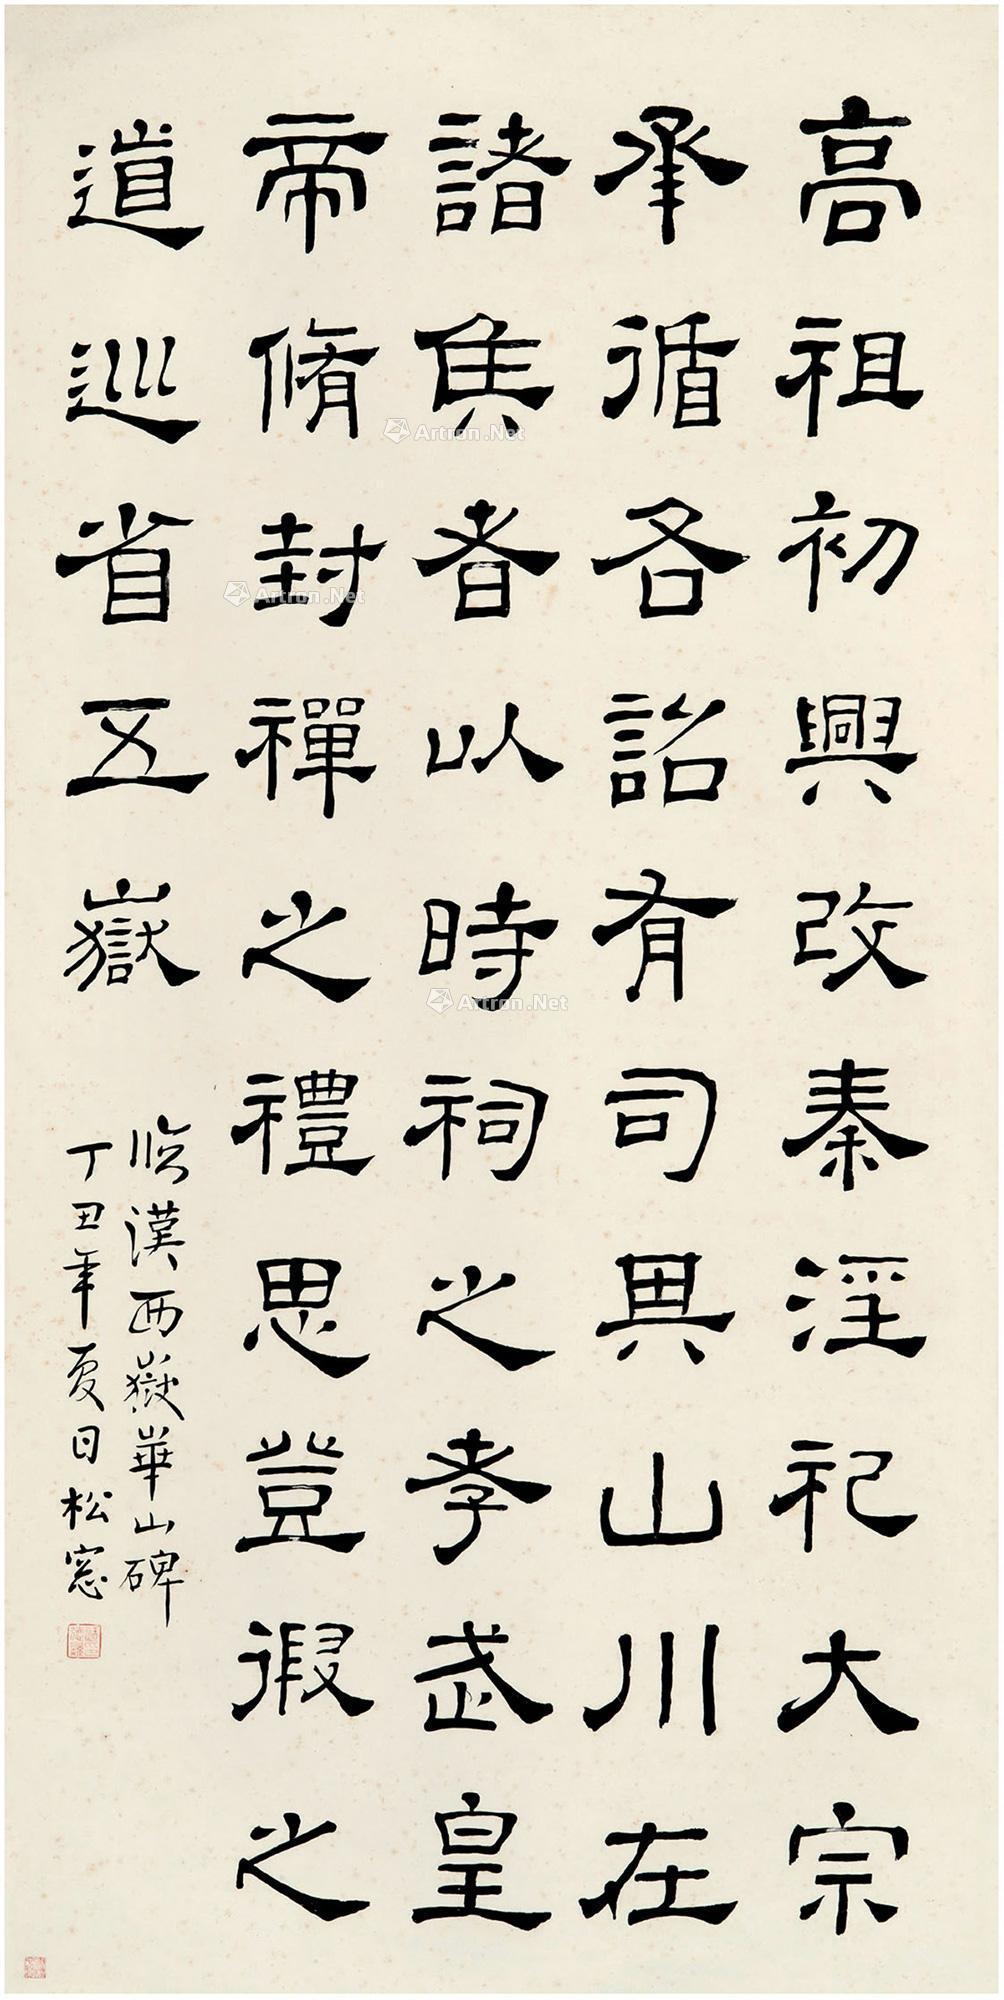 高祖初興改秦淫祀大宗
承循各詔有司其山川在
諸矦者以時祠之孝武皇
帝脩封禪之禮思登徦之
道巡省五嶽
臨漢西嶽華山碑
丁丑年夏日松窓
Artron.Net
Artron.Net
Artron.Net